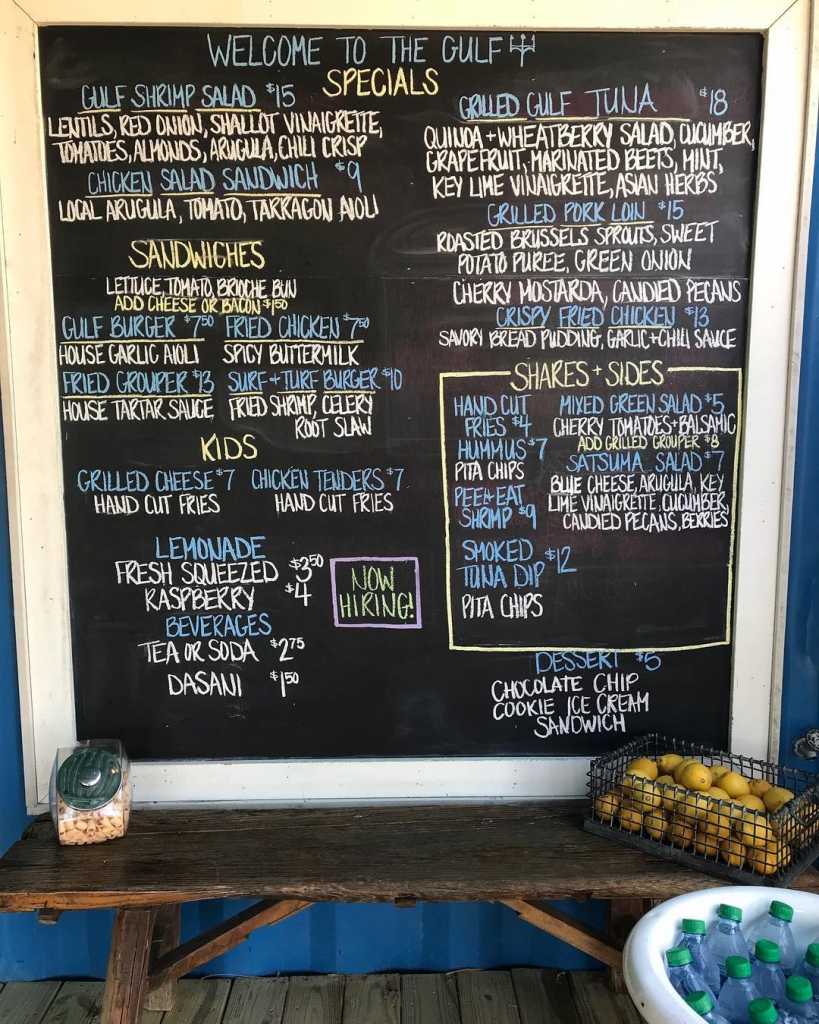 WELCOME TO THE GULF
SPECIALS
GULF SHRIMP SALAD $15
LENTILS, RED ONION, SHALLOT VINAIGRETTE,
TOMATOES, ALMONDS, ARUGULA, CHILI CRISP
CHICKEN SALAD SANDWICH $9
LOCAL ARUGULA, TOMATO, TARRAGON AIOLI
SANDWICHES
LETTUCE, TOMATO, BRIOCHE BUN
ADD CHEESE OR BACON $1.50
GULF BURGER $7.50 FRIED CHICKEN $7.50
HOUSE GARLIC AIOLI SPICY BUTTERMILK
FRIED GROUPER $13 SURF+TURF BURGER $10
HOUSE TARTAR SAUCE FRIED SHRIMP, CELERY
ROOT SLAW
KIDS
GRILLED CHEESE $7 CHICKEN TENDERS $7
HAND CUT FRIES HAND CUT FRIES
LEMONADE
FRESH SQUEEZED $3.50
RASPBERRY $4
BEVERAGES
TEA OR SODA $2.75
DASANI $1.50
NOW
HIRING!
GRILLED GULF TUNA $18
QUINOA + WHEATBERRY SALAD, CUCUMBER,
GRAPEFRUIT, MARINATED BEETS, MINT,
KEY LIME VINAIGRETTE, ASIAN HERBS
GRILLED PORK LOIN $15
ROASTED BRUSSELS SPROUTS, SWEET
POTATO PUREE, GREEN ONION
CHERRY MOSTARDA, CANDIED PECANS
CRISPY FRIED CHICKEN $13
SAVORY BREAD PUDDING, GARLIC+CHILI SAUCE
SHARES + SIDES
HAND CUT
FRIES $4
HUMMUS $7
PITA CHIPS
PEEL+EAT
SHRIMP $9
SMOKED
TUNA DIP $12
PITA CHIPS
MIXED GREEN SALAD $5
CHERRY TOMATOES+BALSAMIC
ADD GRILLED GROUPER $8
SATSUMA SALAD $7
BLUE CHEESE, ARUGULA, KEY
LIME VINAIGRETTE, CUCUMBER,
CANDIED PECANS, BERRIES
DESSERT $5
CHOCOLATE CHIP
COOKIE ICE CREAM
SANDWICH